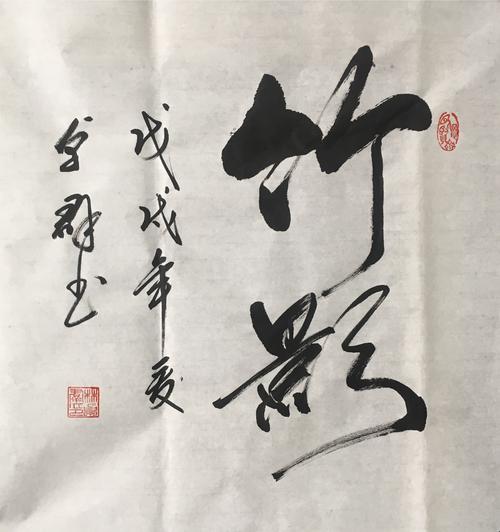 竹影
戊戌年夏
群书